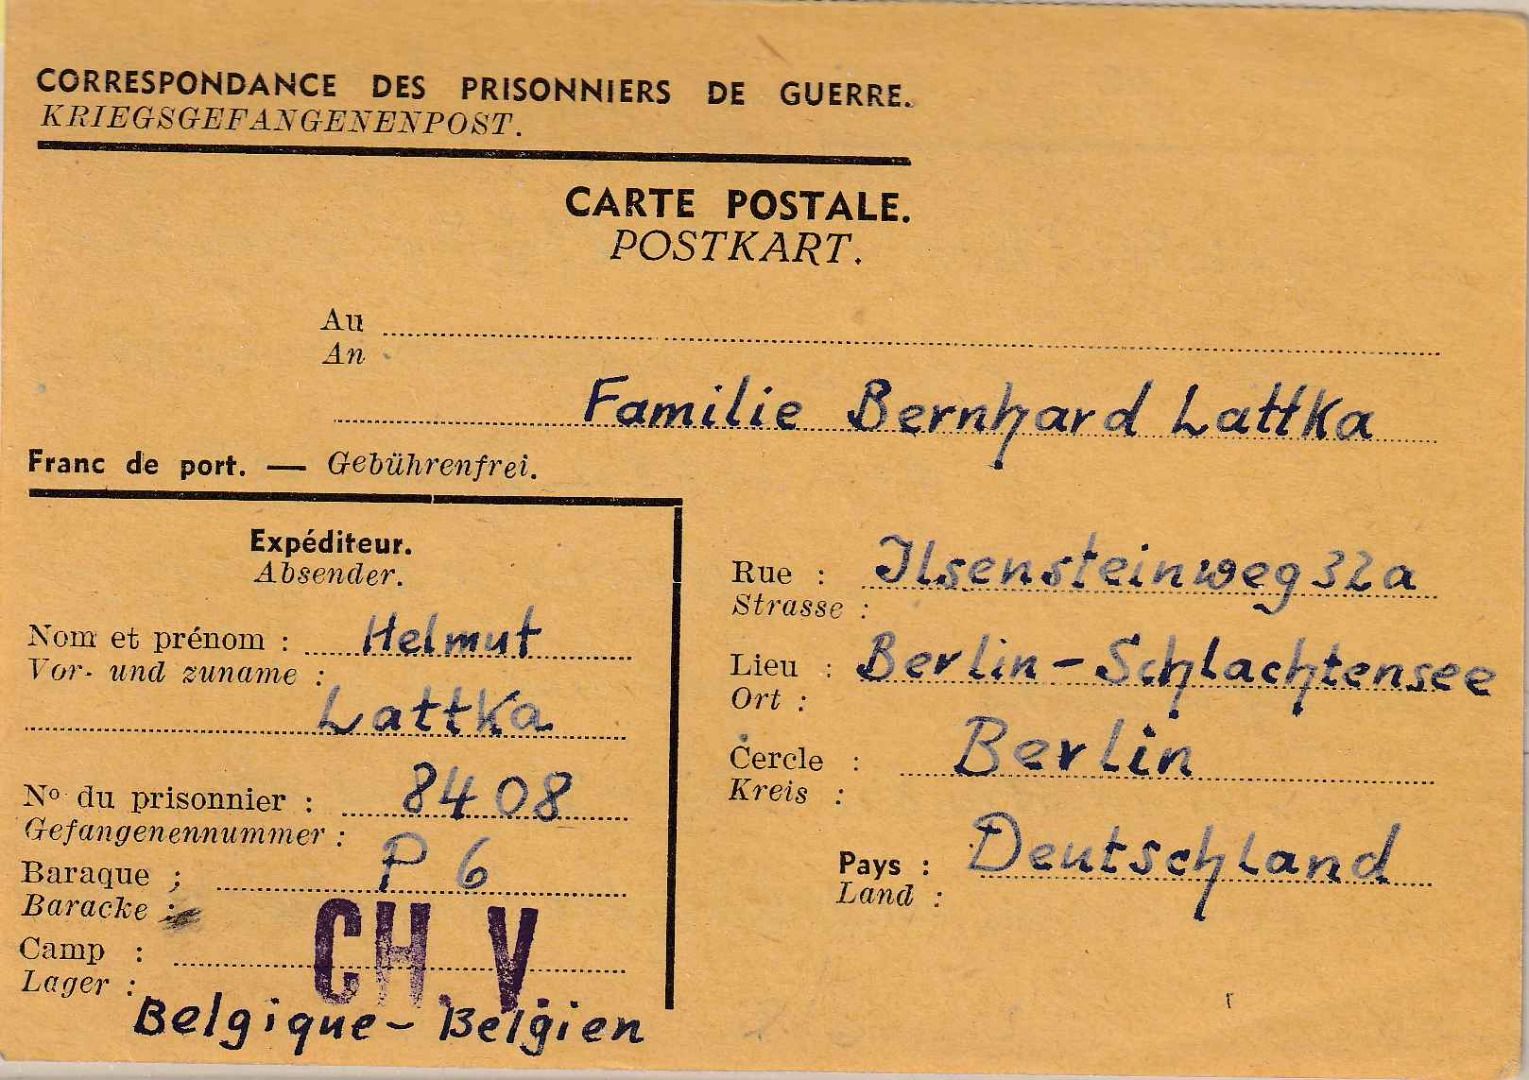 CORRESPONDANCE DES PRISONNIERS DE GUERRE.
KRIEGSGEFANGENENPOST.
CARTE POSTALE.
POSTKART.
Au
An
Familie Bernhard Lattka
Franc de port. — Gebührenfrei.
Expéditeur.
Absender.
Nom et prénom : Helmut
Vor- und zuname :
Lattka
Nº du prisonnier : 8408
Gefangenennummer :
Baraque ; P 6
Baracke :
Camp : CH. V.
Lager :
Belgique - Belgien
Rue : Ilsensteinweg 32a
Strasse :
Lieu : Berlin-Schlachtensee
Ort :
Cercle : Berlin
Kreis :
Pays : Deutschland
Land :